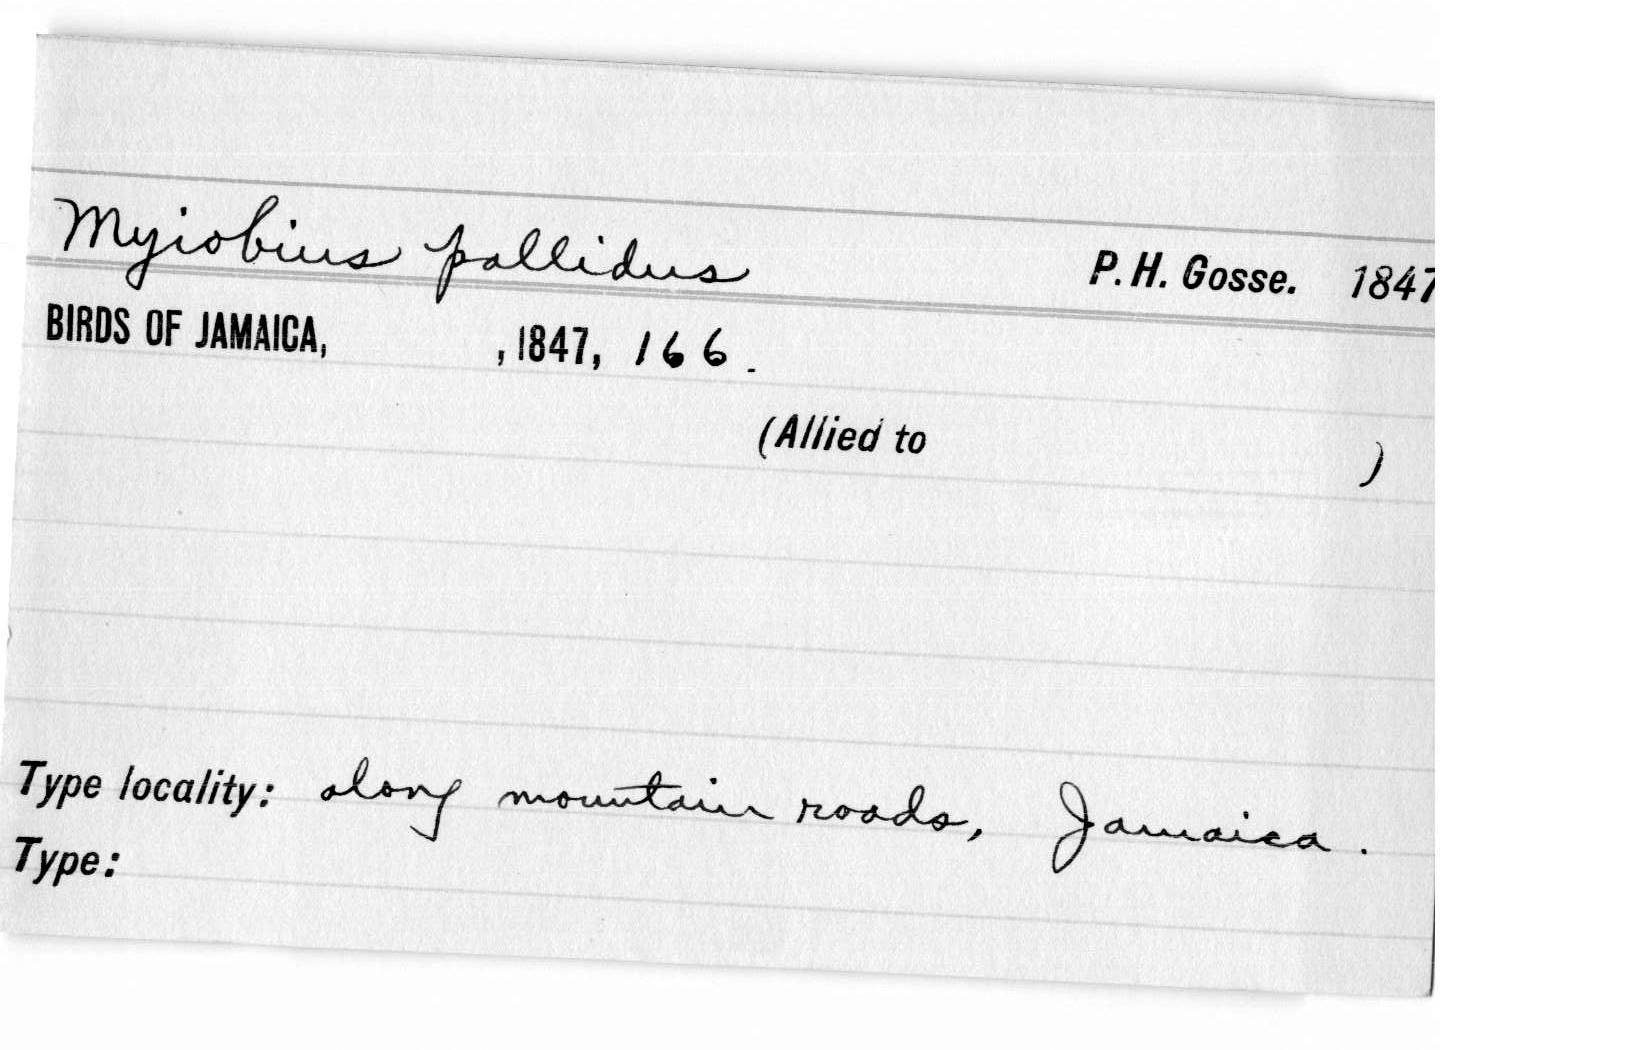 Myiobius pallidus P. H. Gosse. 1847
BIRDS OF JAMAICA, , 1847, 166.
(Allied to )
Type locality: along mountain roads, Jamaica.
Type: